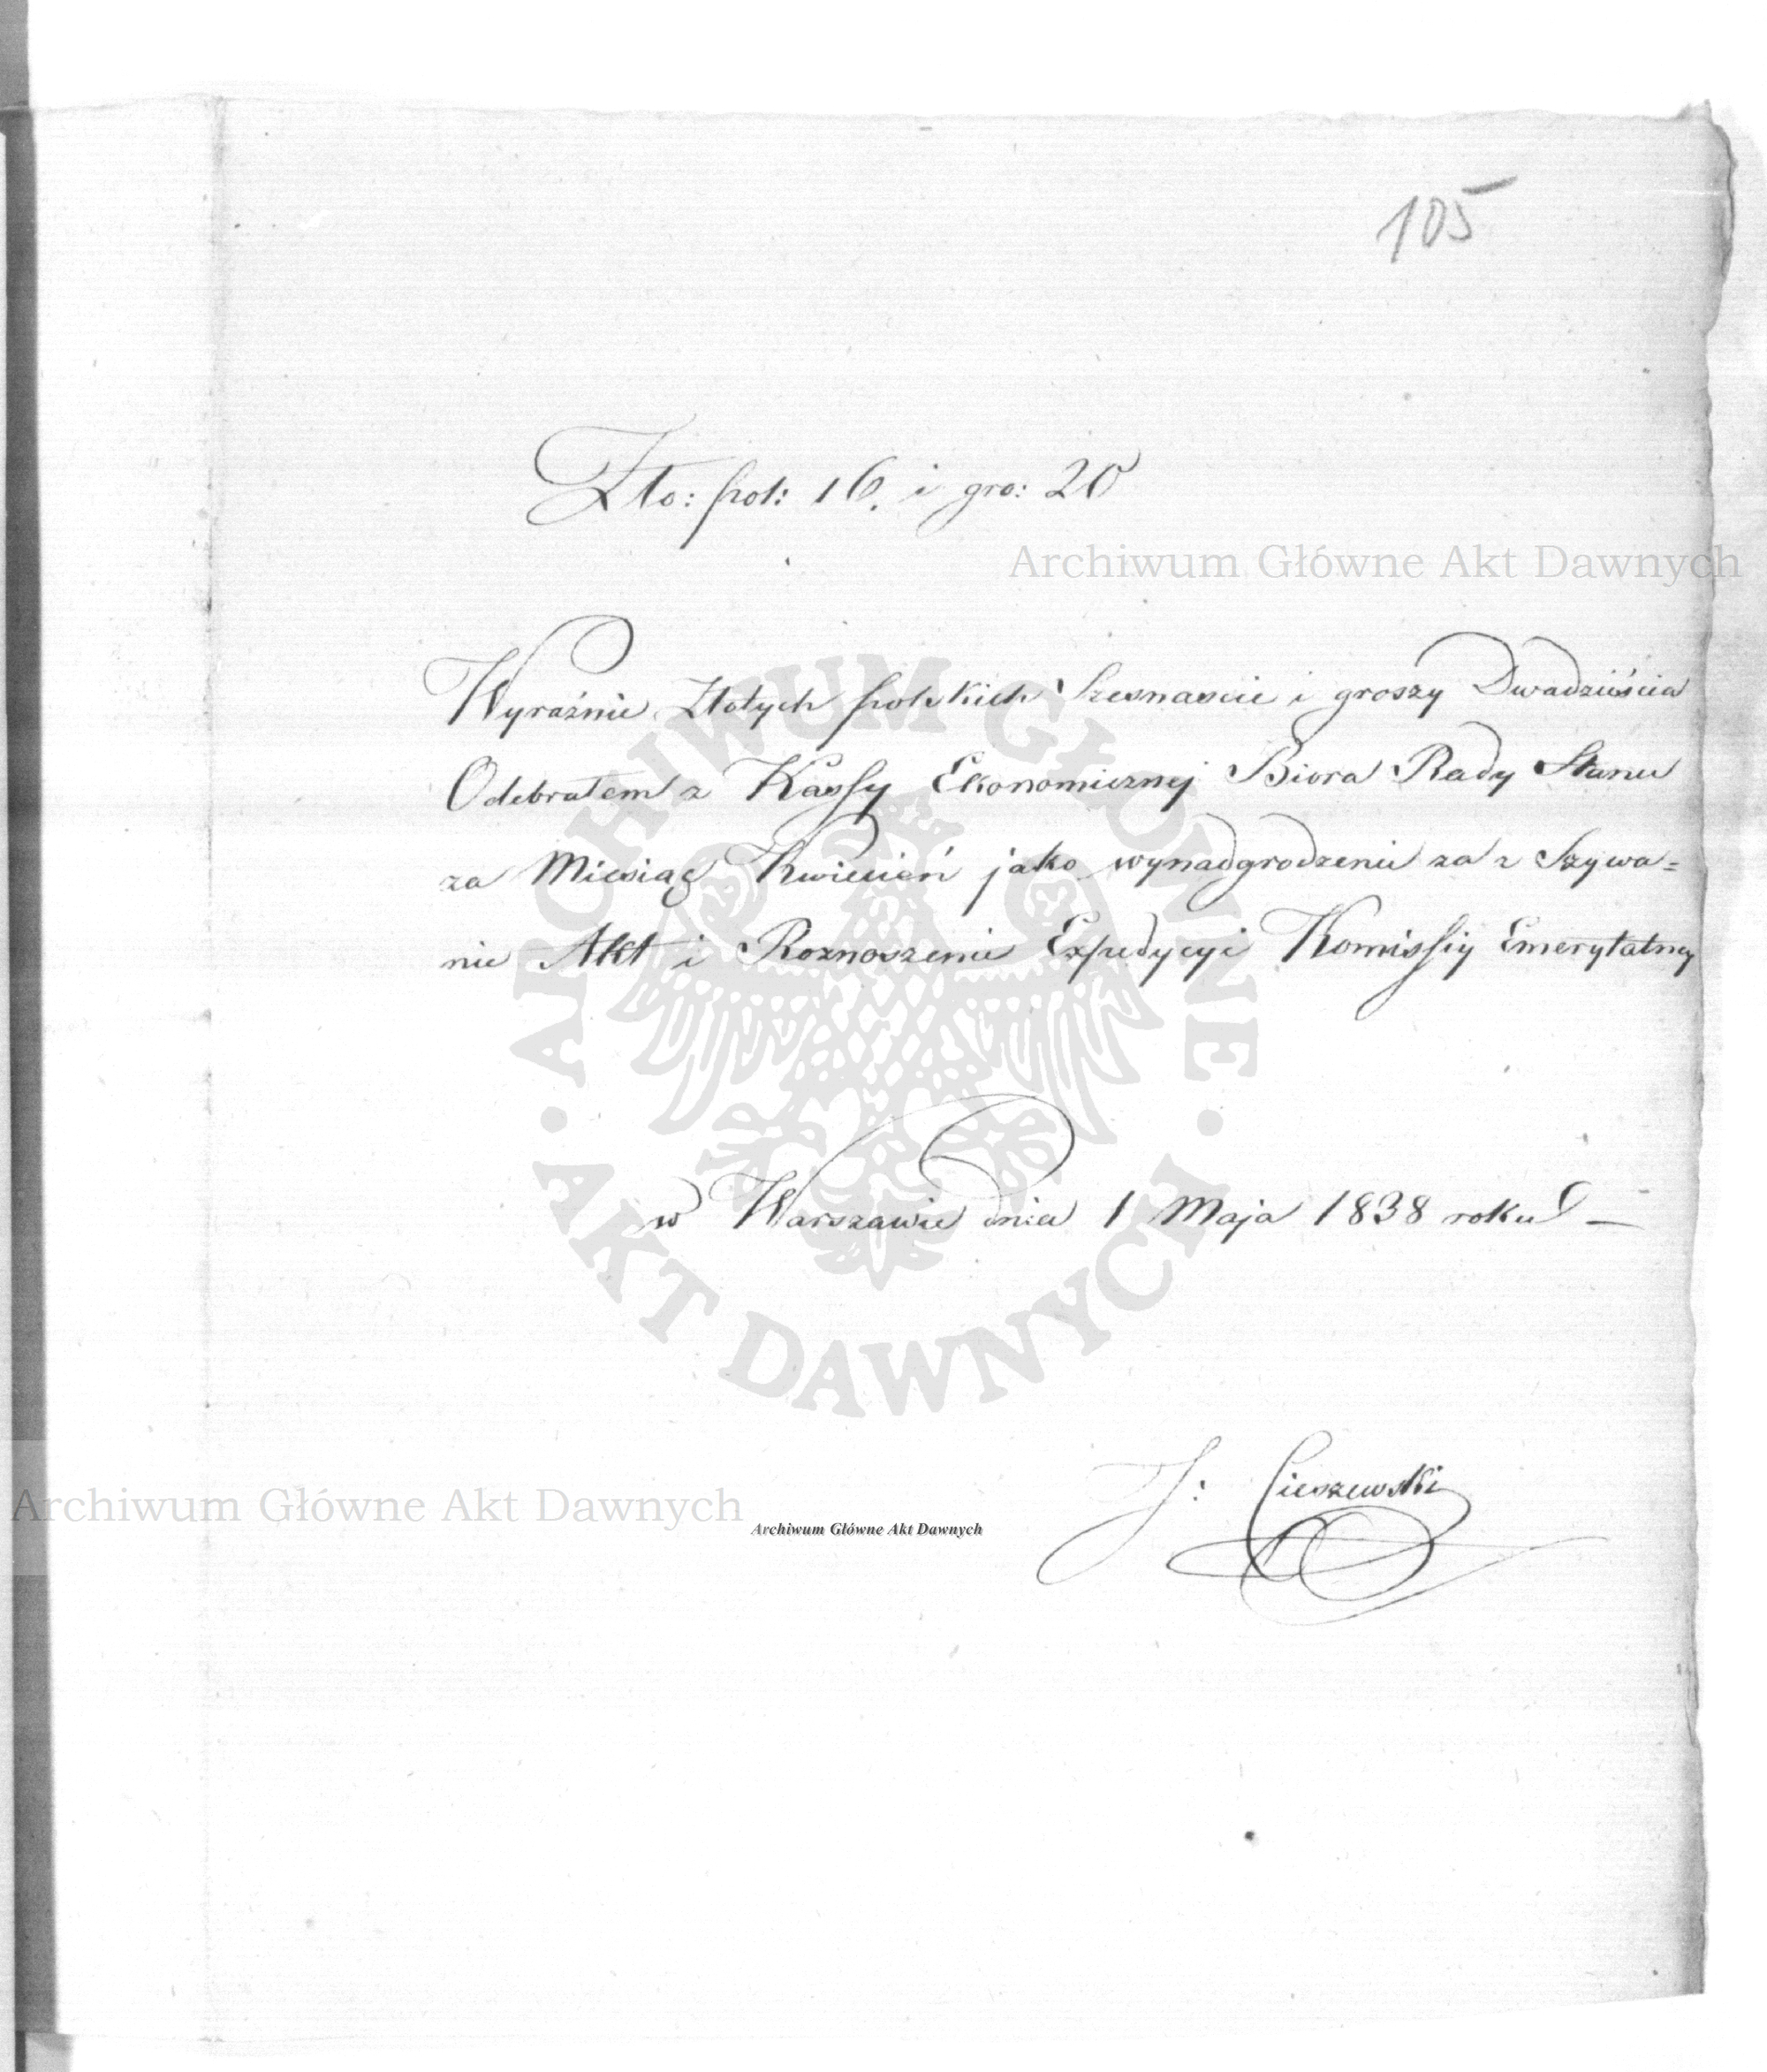 105
Zło: pol: 16. i gro: 20
Archiwum Główne Akt Dawnych
Wyraźnie Złotych polskich Szesnaście i groszy Dwadzieścia
Odebrałem z Kassy Ekonomicznej Biora Rady Stanu
za Miesiąc Kwiecień jako wynadgrodzenie za z Szywa=
nie Akt i Roznoszenie Expedycyi Komissiy Emerytalney
ARCHIWUM GŁÓWNE · AKT DAWNYCH ·
w Warszawie dnia 1 Maja 1838 roku —
J: Cieszewski
Archiwum Główne Akt Dawnych
Archiwum Główne Akt Dawnych